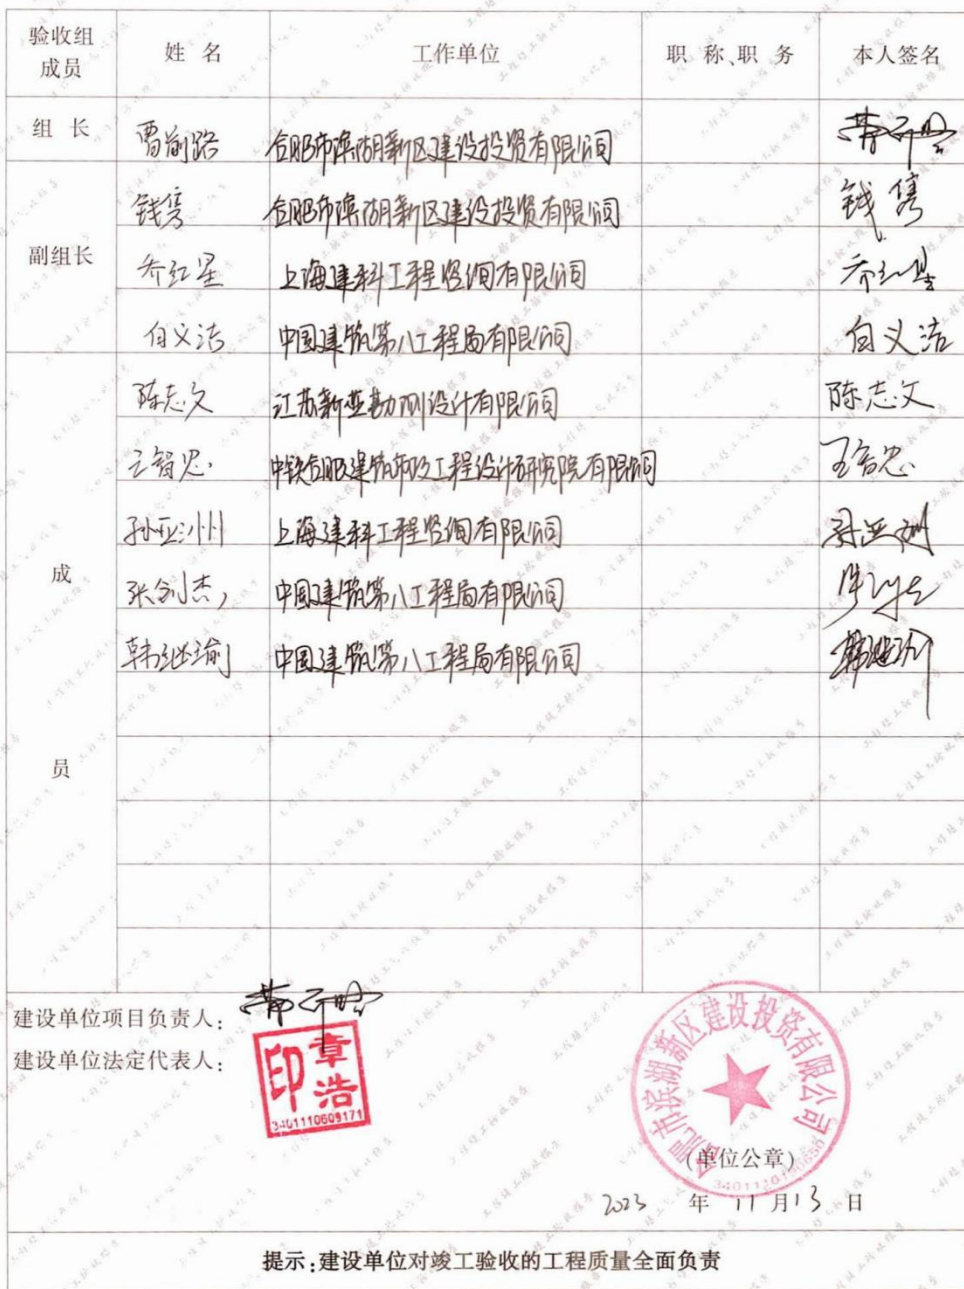 验收组成员 姓 名 工作单位 职 称、职 务 本人签名
组 长 曹前路 合肥市滨湖新区建设投资有限公司
钱隽 合肥市滨湖新区建设投资有限公司 钱隽
副组长 乔红星 上海建科工程咨询有限公司 乔红星
白义洁 中国建筑第八工程局有限公司 白义洁
陈志文 江苏新亚勘测设计有限公司 陈志文
王智忠 中铁合肥建筑市政工程设计研究院有限公司 王智忠
孙亚洲 上海建科工程咨询有限公司 孙亚洲
成 张剑杰 中国建筑第八工程局有限公司
韩继瑜 中国建筑第八工程局有限公司 韩继瑜
员
建设单位项目负责人:
建设单位法定代表人:
章浩印
3401110609171
合肥市滨湖新区建设投资有限公司
(单位公章)
2023 年 11 月 13 日
提示:建设单位对竣工验收的工程质量全面负责